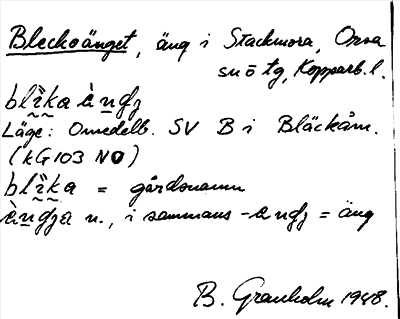 Bleckoänget, äng i Stackmora, Orsa
sn ö tg, Kopparb. l.
blìka àndʒ
Läge: Omedelb. SV B i Bläckåm.
(KG103 NO)
blìka = gårdsnamn
àndʒa n., i sammans -andʒ = äng
B. Granholm 1948.